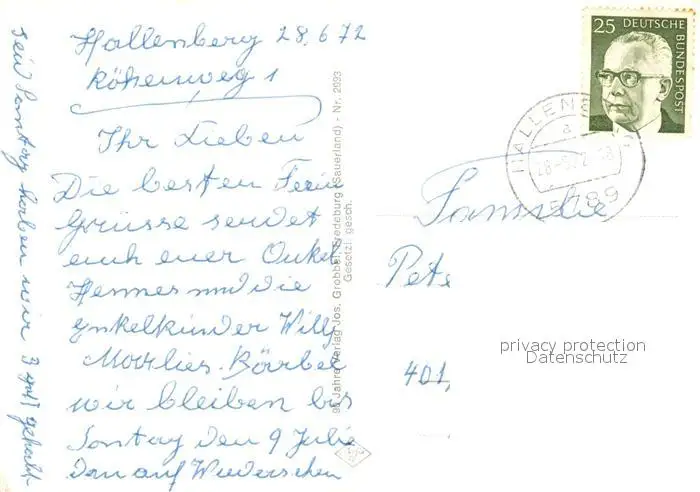 Hallenberg 28.6.72
Röhenweg 1
Ihr Lieben
Die besten Ferin
Grüsse sendet
euch euer Onkel
Hennes und die
Enkelkinder Willy
Marlies. Bärbel
wir bleiben bis
Sontag den 9 Julie
dan auf Wiedersehen
seid Samstag haben wir 3 gehabt
90 Jahre Verlag Jos. Grobbel, Fredeburg (Sauerland) - Nr. 2093
Gesetzl. gesch.
25 DEUTSCHE
BUNDESPOST
HALLEN
a
5789
Familie
Pete
401,
privacy protection
Datenschutz